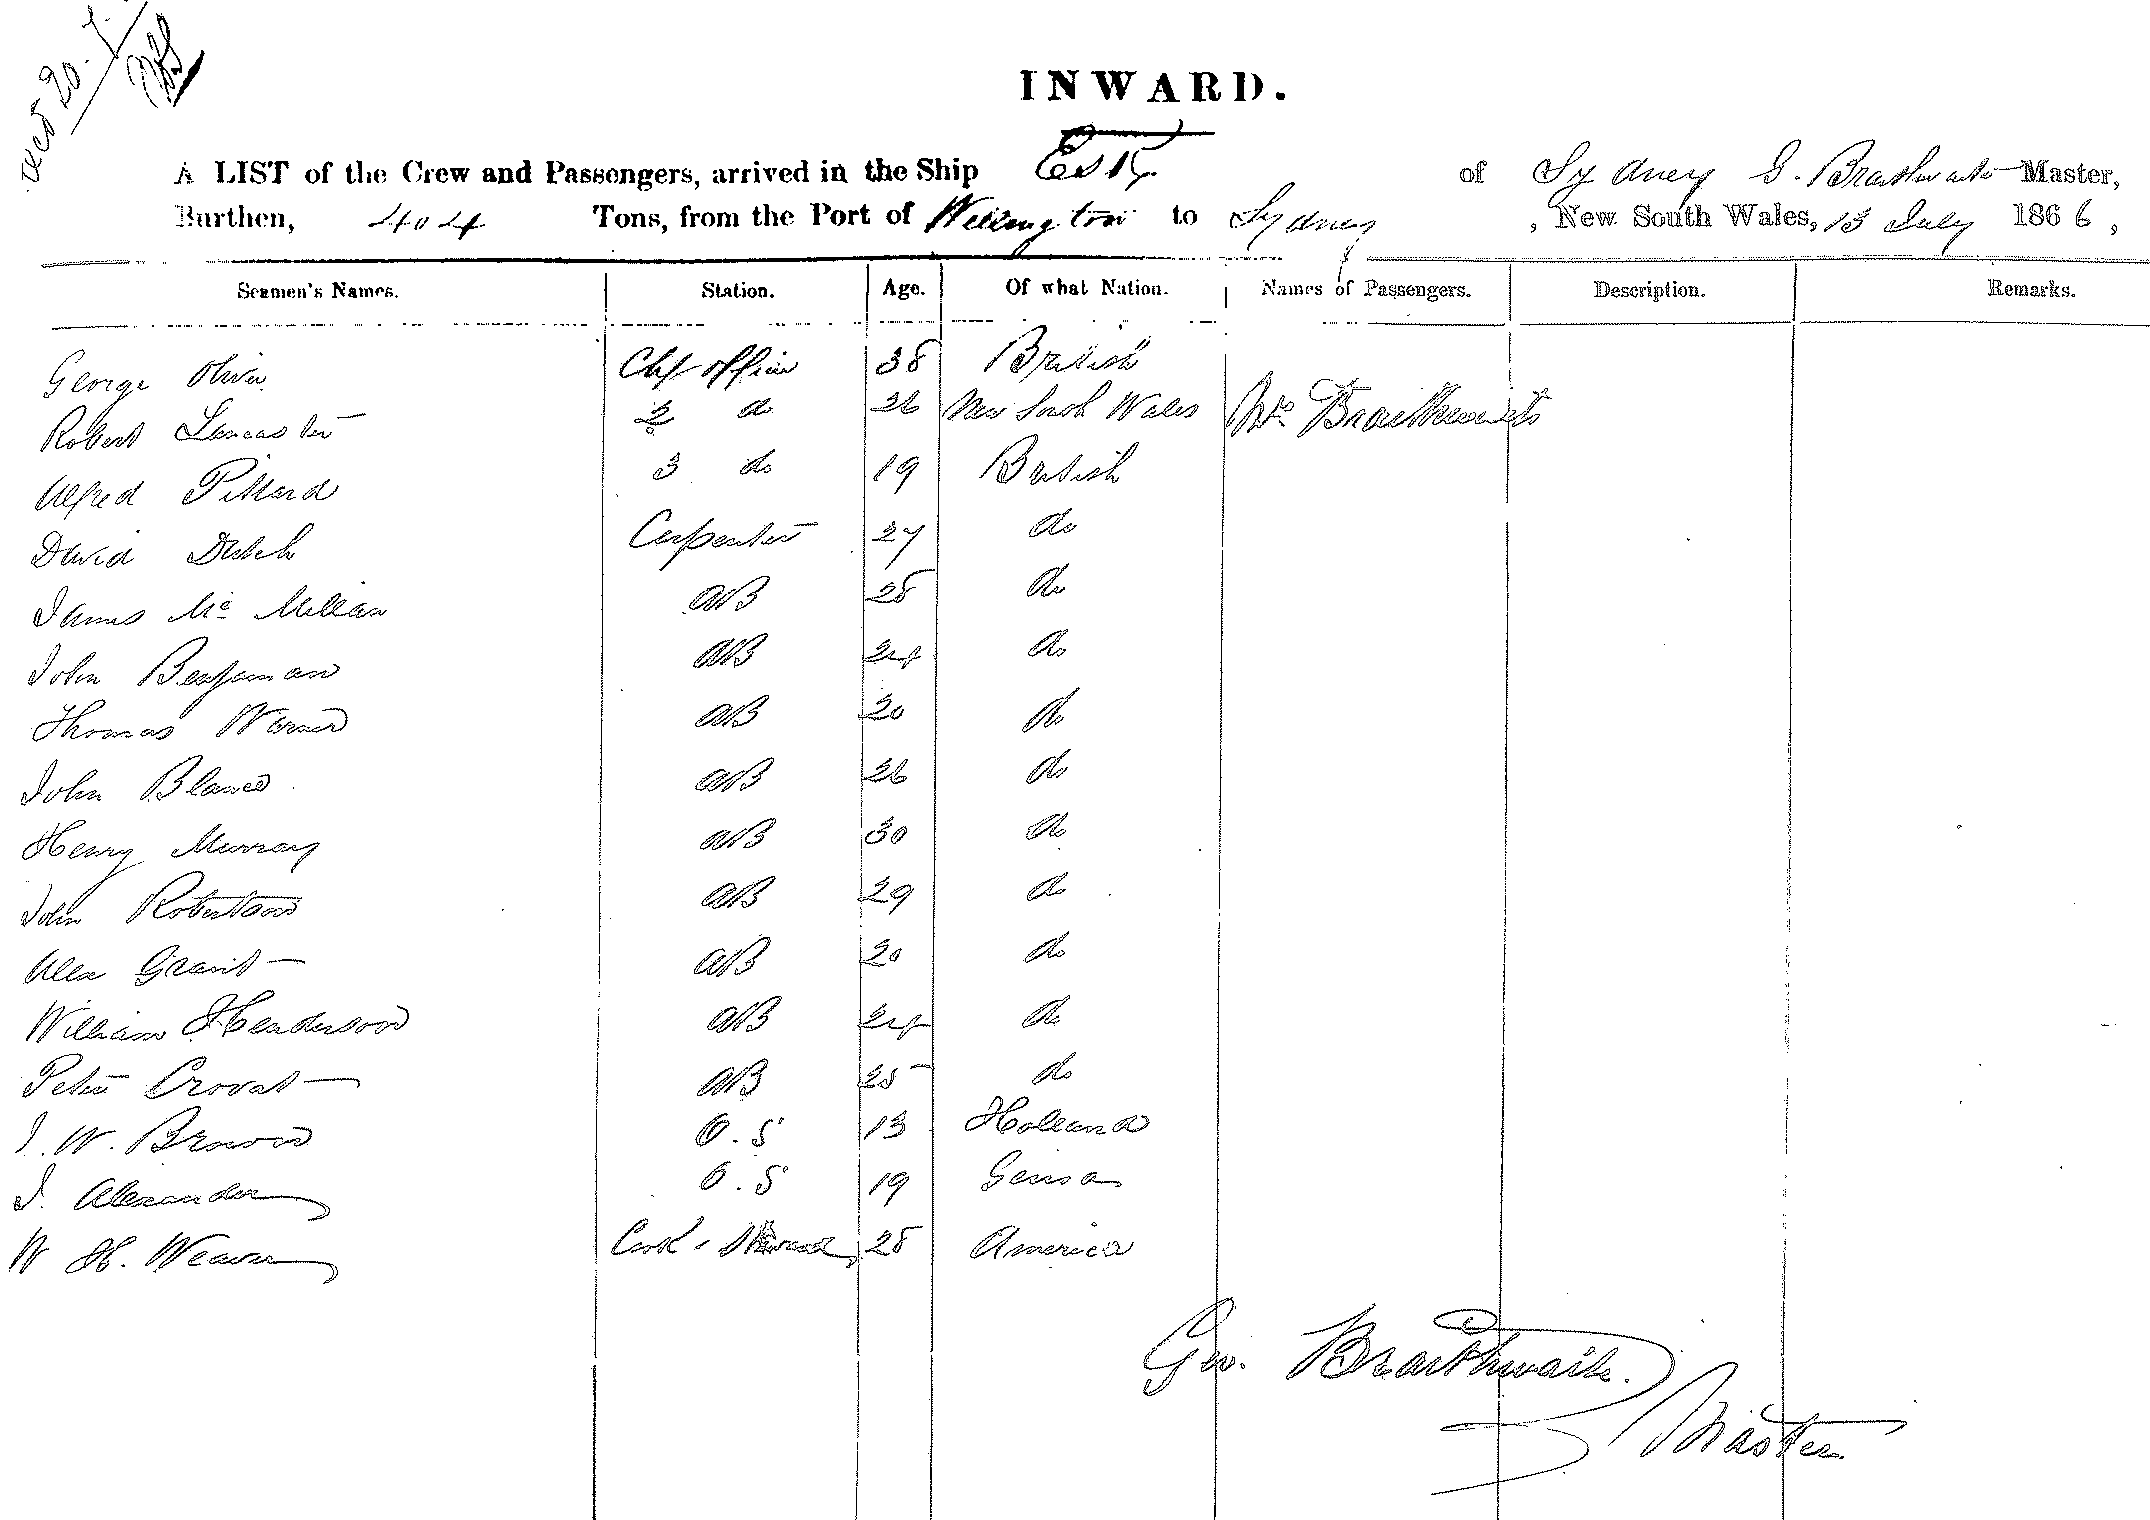 recd 20.
INWARD.
A LIST of the Crew and Passengers, arrived in the Ship Esk of Sydney G. Braithwaite Master,
Burthen, 404 Tons, from the Port of Wellington to Sydney, New South Wales, 13 July 1866,
Seamen's Names. Station. Age. Of what Nation. Names of Passengers. Description. Remarks.
George Oliver Chf officer 38 British
Robert Lancaster 2 do 26 New South Wales Mrs Braithwaite
Alfred Pittard 3 do 19 British
David Dutch Carpenter 27 do
James Mc Millan AB 28 do
John Benjaman AB 24 do
Thomas Warner AB 20 do
John Blanco AB 26 do
Henry Murray AB 30 do
John Robertson AB 29 do
Alex Grant AB 20 do
William Henderson AB 24 do
Peter Crovat AB 25 do
J. W. Brown O.S 13 Holland
J. Alexander O.S 19 Genoa
W H. Weaver Cook & Steward 28 America
Geo. Braithwaite.
Master